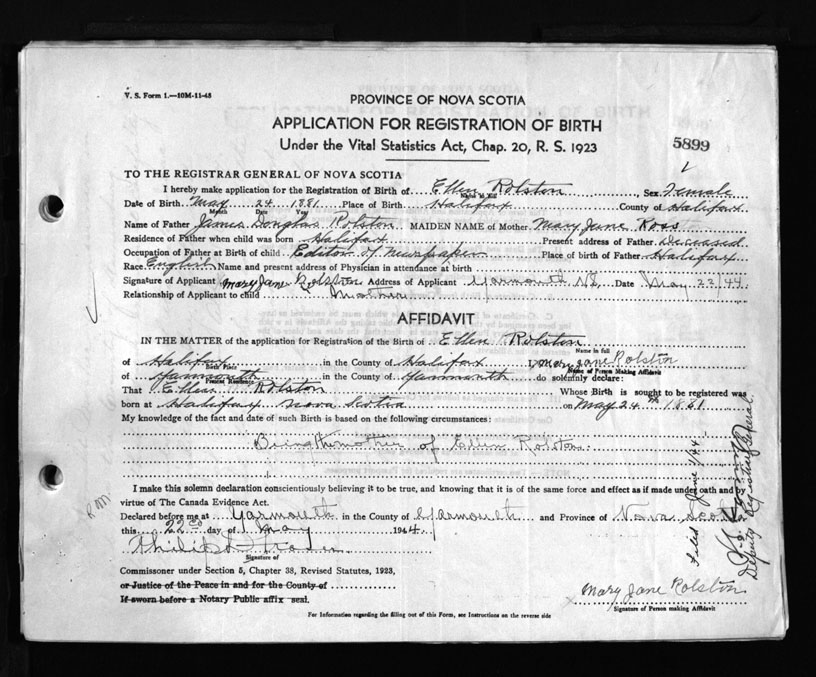 V. S. Form 1.—10M-11-43
PROVINCE OF NOVA SCOTIA
APPLICATION FOR REGISTRATION OF BIRTH
Under the Vital Statistics Act, Chap. 20, R. S. 1923
5899
TO THE REGISTRAR GENERAL OF NOVA SCOTIA
I hereby make application for the Registration of Birth of Ellen Rolston, Sex Female
Name in full
Date of Birth May 24 1881 Place of Birth Halifax County of Halifax
Month Date Year
Name of Father James Douglas Rolston MAIDEN NAME of Mother Mary Jane Ross
Residence of Father when child was born Halifax Present address of Father deceased
Occupation of Father at Birth of child Editor of Newspaper Place of birth of Father Halifax
Race English Name and present address of Physician in attendance at birth
Signature of Applicant Mary Jane Rolston Address of Applicant Yarmouth NS Date May 22/44
Relationship of Applicant to child Mother
AFFIDAVIT
IN THE MATTER of the application for Registration of the Birth of Ellen Rolston
Name in full
of Halifax in the County of Halifax I, Mary Jane Rolston
Birth Place Name of Person Making Affidavit
of Yarmouth in the County of Yarmouth do solemnly declare:
Present Residence
That Ellen Rolston Whose Birth is sought to be registered was
born at Halifax Nova Scotia on May 24th 1881
My knowledge of the fact and date of such Birth is based on the following circumstances:
Being the mother of Ellen Rolston.
I make this solemn declaration conscientiously believing it to be true, and knowing that it is of the same force and effect as if made under oath and by
virtue of The Canada Evidence Act.
Declared before me at Yarmouth in the County of Yarmouth and Province of Nova Scotia
this 22nd day of May 1944
Signature of
Commissioner under Section 5, Chapter 38, Revised Statutes, 1923,
or Justice of the Peace in and for the County of
If sworn before a Notary Public affix seal.
Mary Jane Rolston
Signature of Person making Affidavit
For Information regarding the filling out of this Form, see Instructions on the reverse side
Filed June 1/44
Deputy Registrar General